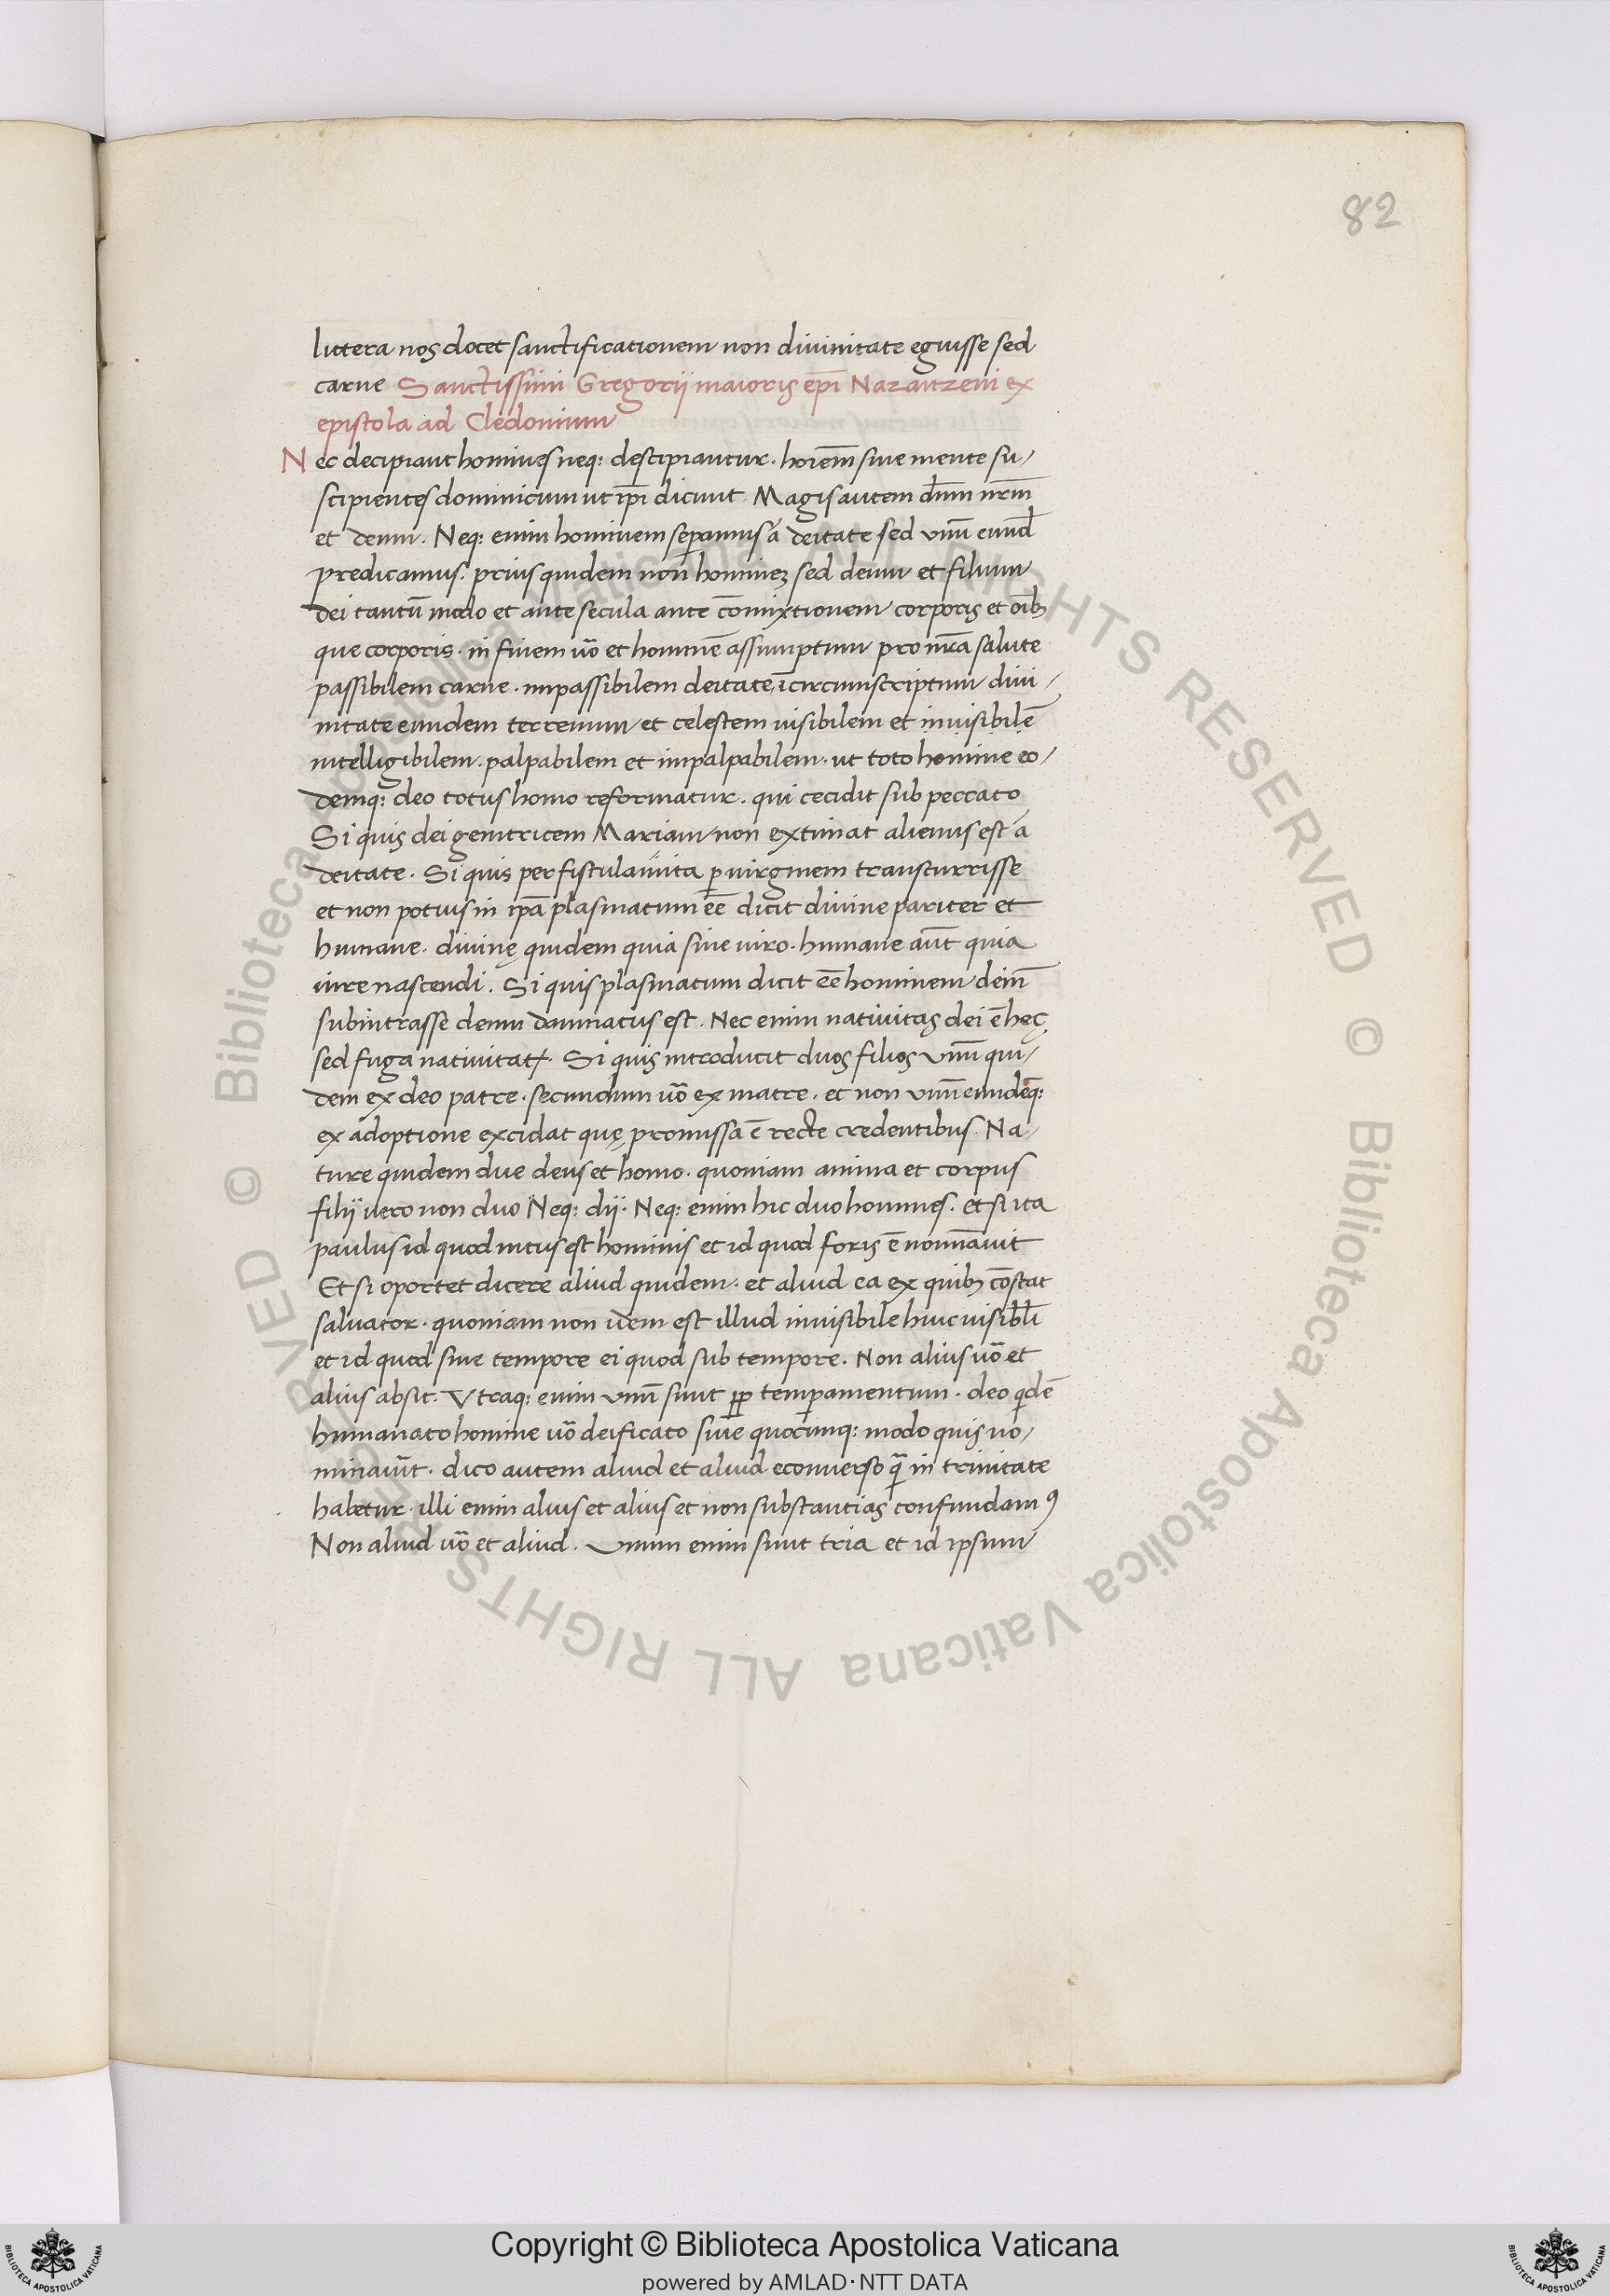 82
littera nos docet sanctificationem non divinitate eguisse sed
carne Sanctissimi Gregorii maioris ep̄i Nazanzeni ex
epistola ad Cledonium
Nec decipiant homines neq: descipiantur. hoīem̄ sine mente su/
scipientes dominicum ut ip̄i dicunt Magis autem dn̄m nr̄m
et deum. Neq: enim hominem sep̄amus á deitate sed vnū eund̄
predicamus. prius quidem non hominez sed deum et filium
dei tantū modo et ante secula ante cōmixtionem corporis et oīb
que corporis. in finem uō et hominē assumptum pro nr̄a salute
passibilem carne. impassibilem deitate, īcircumscriptum divi/
nitate eundem terrenum et celestem visibilem et invisibilē
intelligibilem. palpabilem et impalpabilem. ut toto homine eo/
demq: deo totus homo reformatur. qui cecidit sub peccato
Si quis dei genitricem Mariam non extimat alienus est á
deitate. Si quis per fistulam ita p virginem transcurrisse
et non potius in ip̄a plasmatum eē dicit divine pariter et
humane. divinę quidem quia sine viro. humane aūt quia
iure nascendi. Si quis plasmatum dicit eē hominem dein̄
subintrasse deum damnatus est. Nec enim nativitas dei ē hęc
sed fuga nativitatꝭ. Si quis introducit duos filios vnū qui/
dem ex deo patre. secundum uō ex matre. et non vnū eundēq:
ex adoptione excidat quę promissa ē recte credentibus. Na/
ture quidem due deus et homo. quoniam anima et corpus
filij vero non duo Neq: dij. Neq: enim hic duo homines. et si ita
paulus id quod intus est hominis et id quod foris ē nomīavit
Et si oportet dicere aliud quidem. et aliud ea ex quib cōstat
salvator. quoniam non idem est illud invisibile huic visibl̄i
et id quod sine tempore ei quod sub tempore. Non alius uō et
alius absit. Vtraq: enim vnū sunt pp̄ temp̄amentum. deo qͥdē
humanato homine uō deificato sive quocunq: modo quis no/
minaūt. dico autem aliud et aliud econverso q̄ in trinitate
habetur. illi enim alius et alius et non substantias confundamꝰ
Non aliud uō et aliud. Vnum enim sunt tria et id ipsum
© Biblioteca Apostolica Vaticana ALL RIGHTS RESERVED © Biblioteca Apostolica Vaticana ALL RIGHTS RESERVED
Copyright © Biblioteca Apostolica Vaticana
powered by AMLAD·NTT DATA
BIBLIOTECA APOSTOLICA VATICANA
BIBLIOTECA APOSTOLICA VATICANA